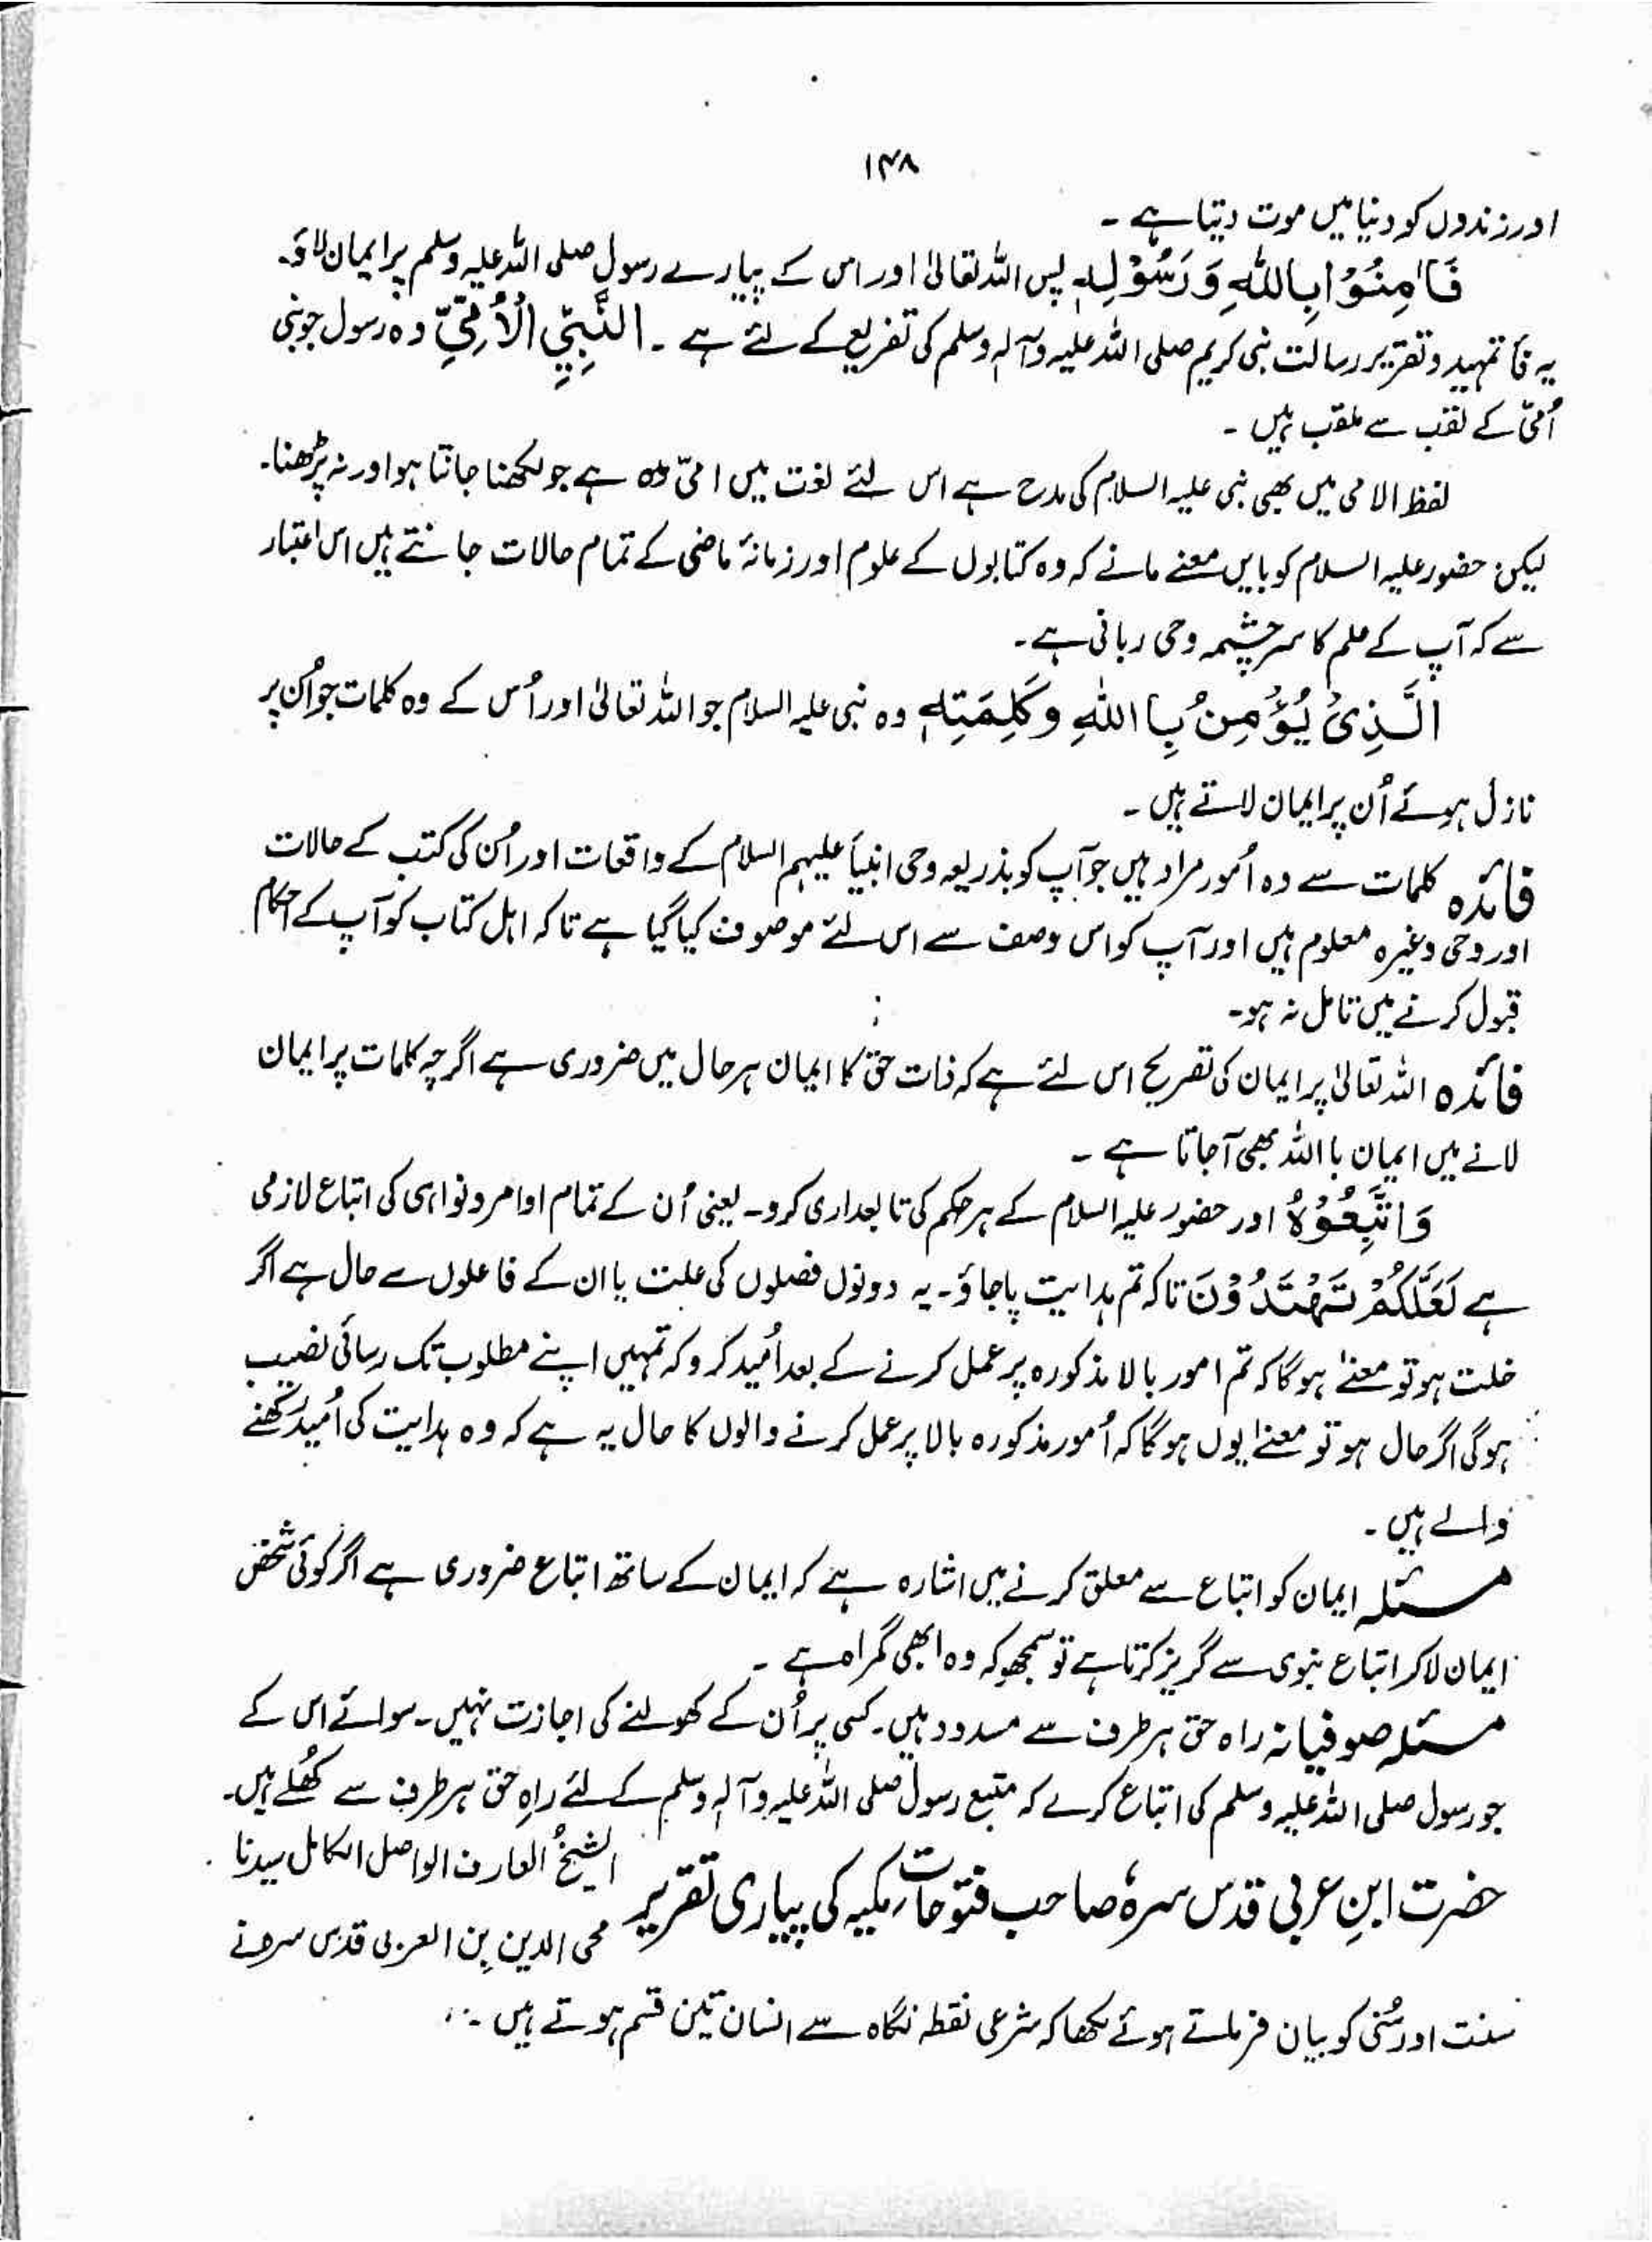 ۱۴۸
اور زندوں کو دنیا میں موت دیتا ہے ۔
فَاٰمِنُوْا بِاللّٰہِ وَرَسُوْلِہٖ پس اللہ تعالیٰ اور اس کے پیارے رسول صلی اللہ علیہ وسلم پر ایمان لاؤ۔
یہ فأ تمہید و تقریر رسالت نبی کریم صلی اللہ علیہ وآلہٖ وسلم کی تفریع کے لئے ہے ۔ النَّبِيِّ الْاُمِّيِّ وہ رسول جو نبی
اُمّی کے لقب سے ملقب ہیں ۔
لفظ الامی میں بھی نبی علیہ السلام کی مدح ہے اس لئے لغت میں امّی وہ ہے جو لکھنا جانتا ہو اور نہ پڑھنا۔
لیکن حضور علیہ السلام کو بایں معنے مانے کہ وہ کتابوں کے علوم اور زمانۂ ماضی کے تمام حالات جانتے ہیں اس اعتبار
سے کہ آپ کے علم کا سرچشمہ وحی ربانی ہے ۔
الَّذِیْ یُؤْمِنُ بِا اللّٰہِ وَکَلِمٰتِہٖ وہ نبی علیہ السلام جو اللہ تعالیٰ اور اُس کے وہ کلمات جو اُن پر
نازل ہوئے اُن پر ایمان لاتے ہیں ۔
فائدہ کلمات سے وہ اُمور مراد ہیں جو آپ کو بذریعہ وحی انبیأ علیہم السلام کے واقعات اور اُن کی کتب کے حالات
اور وحی وغیرہ معلوم ہیں اور آپ کو اس وصف سے اس لئے موصوف کیا گیا ہے تاکہ اہل کتاب کو آپ کے احکام
قبول کرنے میں تامل نہ ہو۔
فائدہ اللہ تعالیٰ پر ایمان کی تصریح اس لئے ہے کہ ذات حق کا ایمان ہر حال میں ضروری ہے اگرچہ کلمات پر ایمان
لانے میں ایمان با اللہ بھی آجاتا ہے ۔
وَاتَّبِعُوْہُ اور حضور علیہ السلام کے ہر حکم کی تابعداری کرو۔ یعنی اُن کے تمام اوامر و نواہی کی اتباع لازمی
ہے لَعَلَّکُمْ تَہْتَدُوْنَ تاکہ تم ہدایت پاجاؤ۔ یہ دونوں فصلوں کی علت یا ان کے فاعلوں سے حال ہے اگر
خلت ہو تو معنےٰ ہوگا کہ تم امور بالا مذکورہ پر عمل کرنے کے بعد اُمید کرو کہ تمہیں اپنے مطلوب تک رسائی نصیب
ہوگی اگر حال ہو تو معنےٰ یوں ہوگا کہ اُمور مذکورہ بالا پر عمل کرنے والوں کا حال یہ ہے کہ وہ ہدایت کی اُمید رکھنے
والے ہیں ۔
مسئلہ ایمان کو اتباع سے معلق کرنے میں اشارہ ہے کہ ایمان کے ساتھ اتباع ضروری ہے اگر کوئی شخص
ایمان لاکر اتباع نبوی سے گریز کرتا ہے تو سمجھو کہ وہ ابھی گمراہ ہے ۔
مسئلہ صوفیانہ راہ حق ہر طرف سے مسدود ہیں۔ کسی پر اُن کے کھولنے کی اجازت نہیں۔ سوائے اس کے
جو رسول صلی اللہ علیہ وسلم کی اتباع کرے کہ متبع رسول صلی اللہ علیہ وآلہٖ وسلم کے لئے راہِ حق ہر طرف سے کھُلے ہیں۔
حضرت ابنِ عربی قدس سرہٗ صاحب فتوحات مکیہ کی پیاری تقریر الشیخُ العارف الواصل الکامل سیدنا
محی الدین بِن العربی قدس سرہ نے
سنت اور سُنّی کو بیان فرماتے ہوئے لکھا کہ شرعی نقطہ نگاہ سے انسان تین قسم ہوتے ہیں ۔